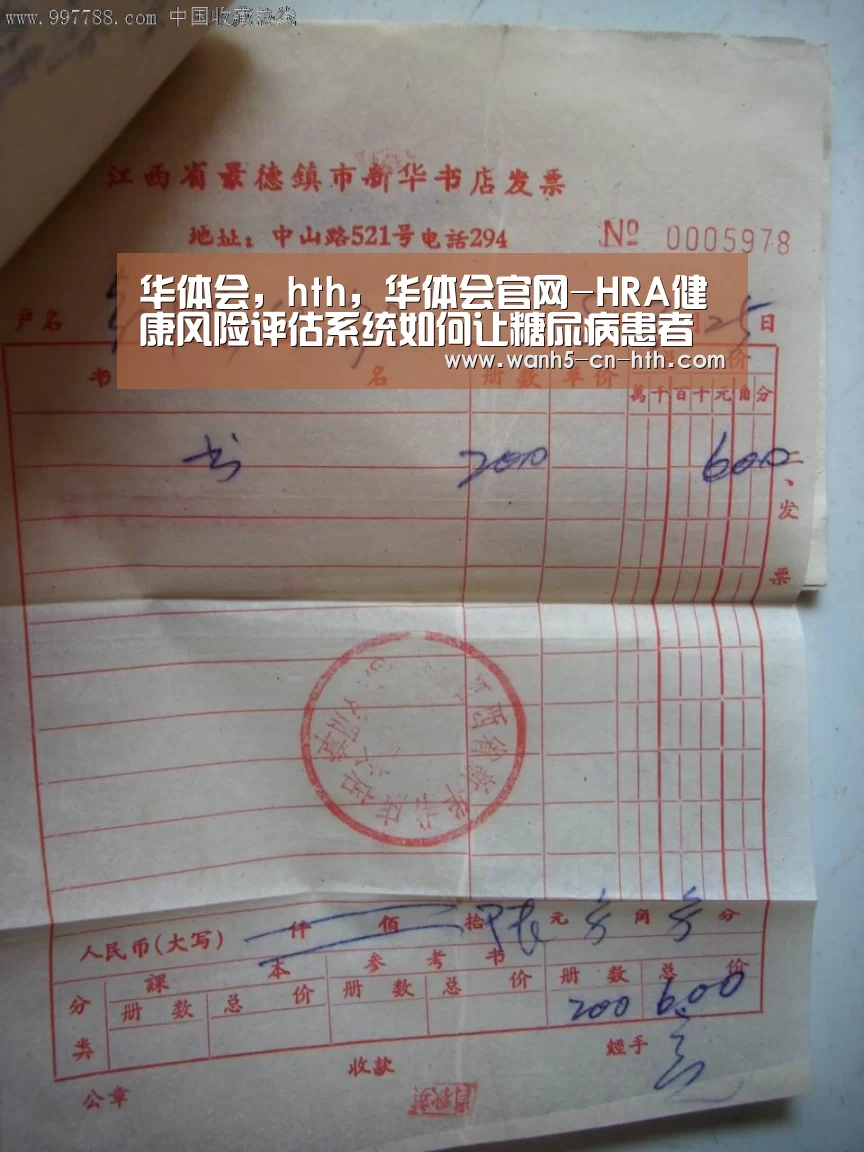 www.997788.com 中国收藏热线
江西省景德鎮市新华书店发票
地址：中山路521号电話294
№ 0005978
华体会，hth，华体会官网-HRA健
康风险评估系统如何让糖尿病患者
www.wanh5-cn-hth.com
户名
25日
书 名 册数 单价 价
萬千百十元角分
书 200 600
二、发票
人民币(大写) 仟 佰 拾 元 角 分
分类 課本 参考书
册数 总价 册数 总价 册数 总价
200 6.00
收款
經手
公章